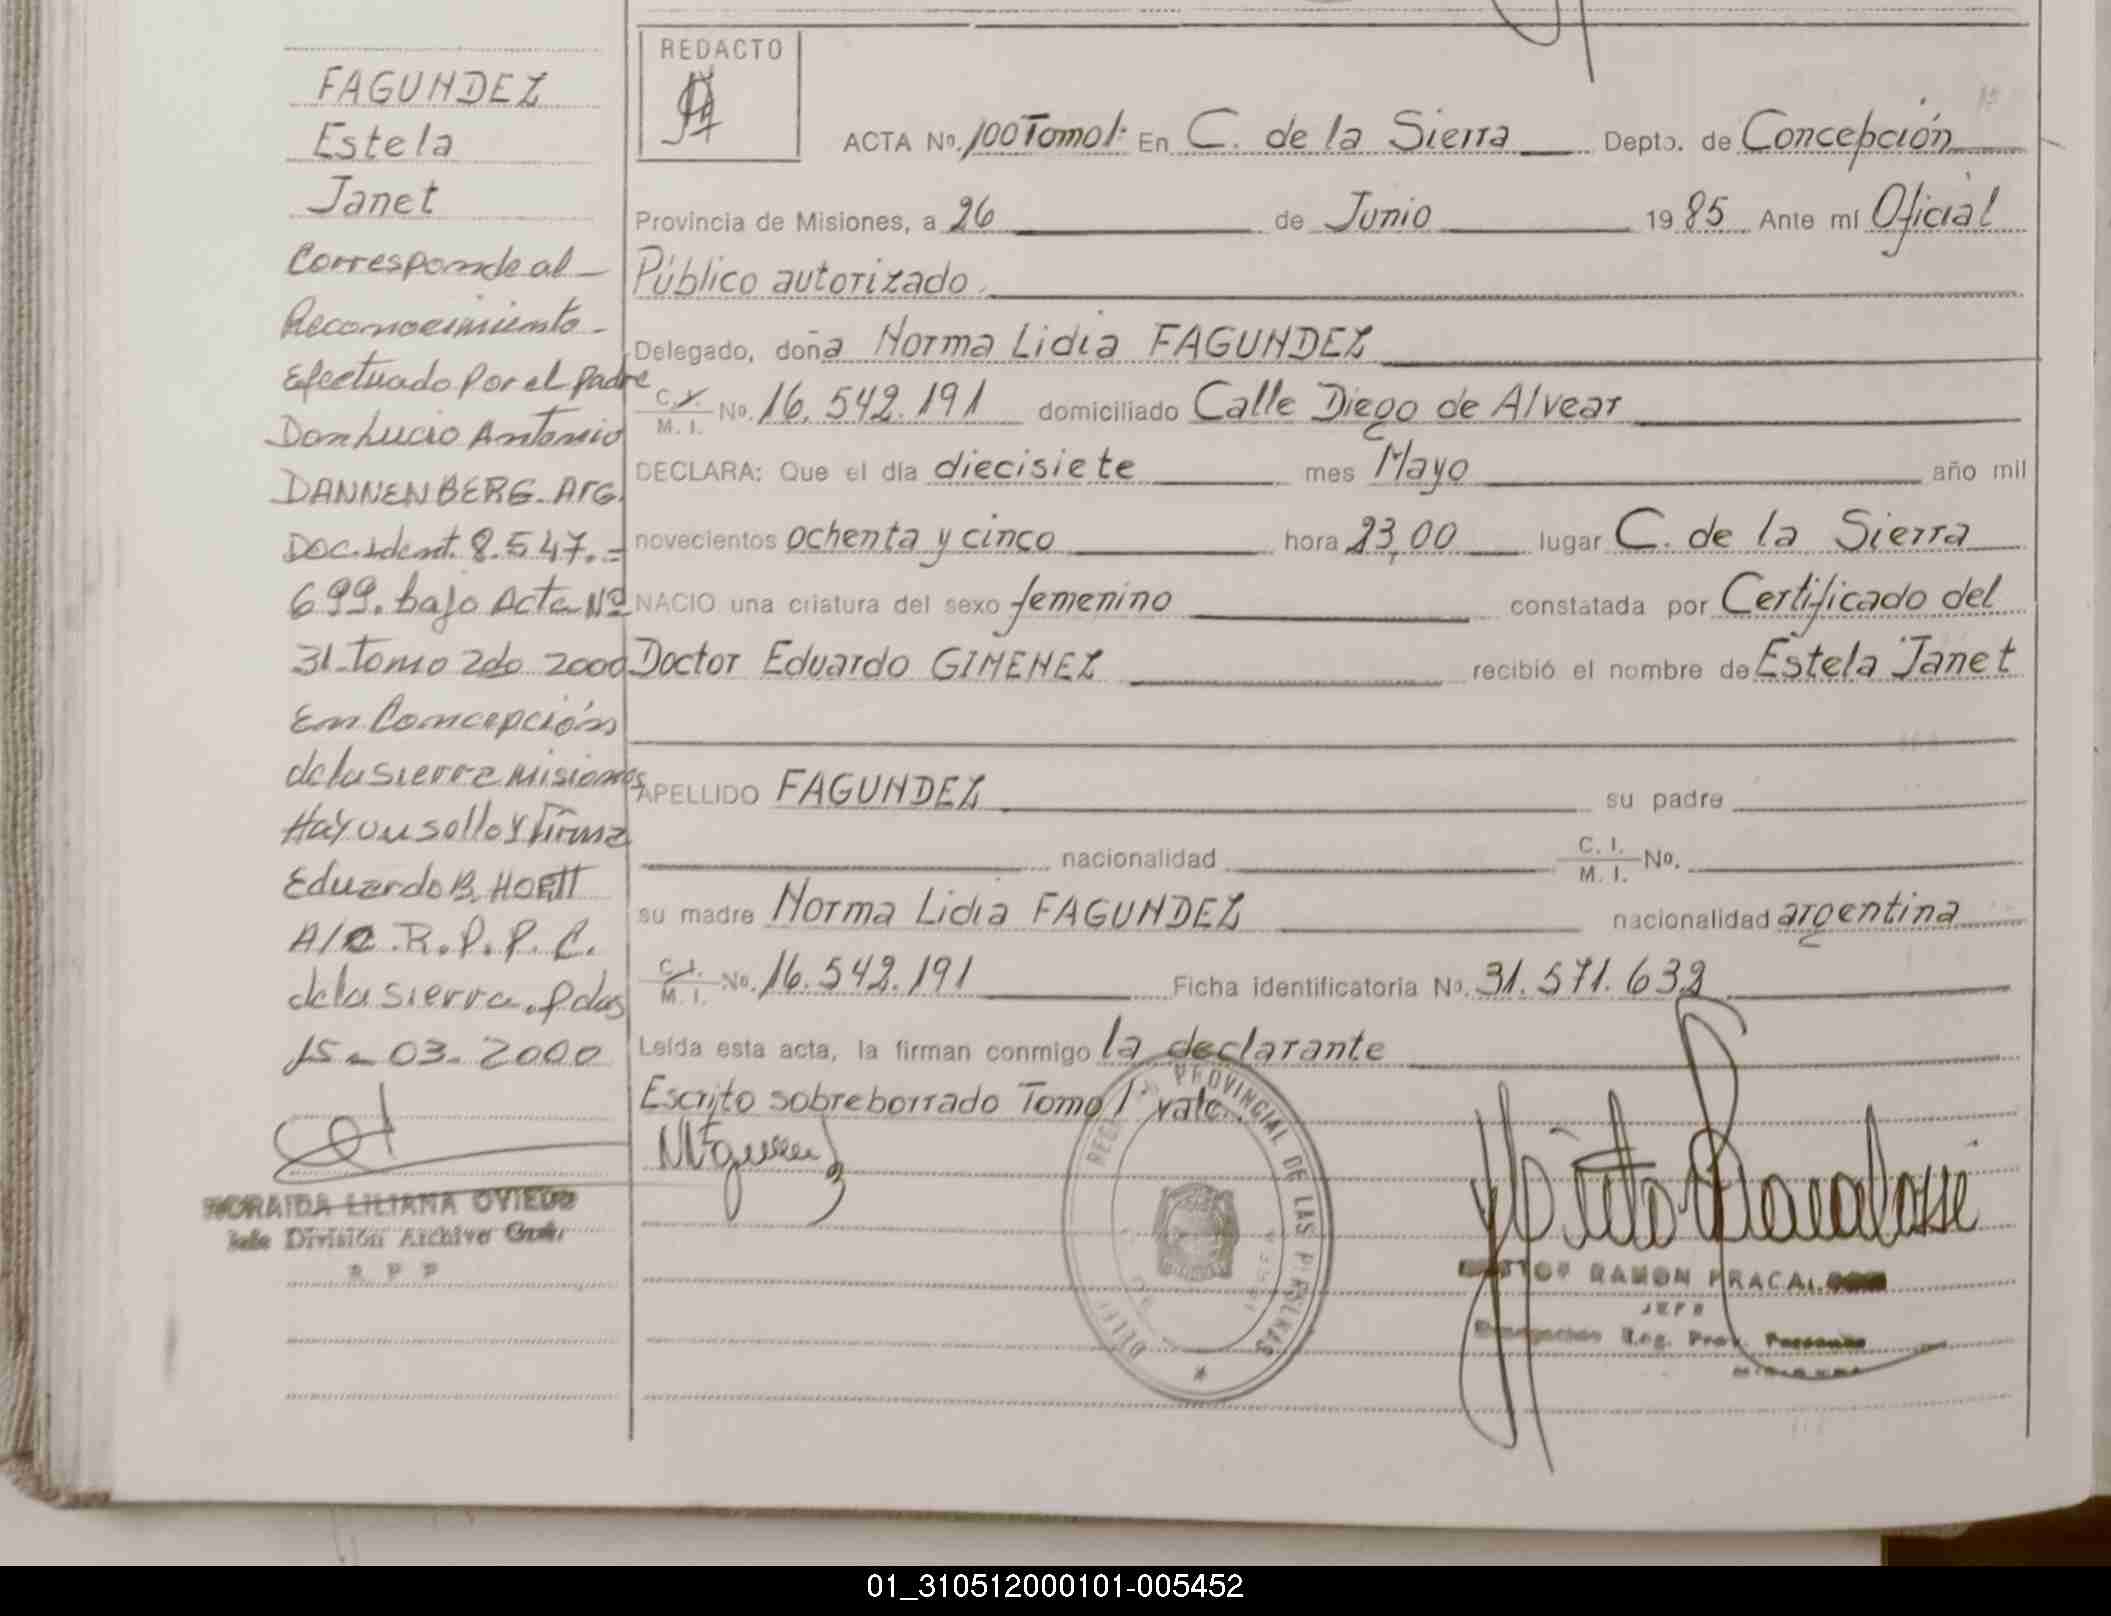 FAGUNDEZ
Estela
Janet
Corresponde al
Reconocimiento
Efectuado Por el padre
Don Lucio Antonio
DANNENBERG. Arg.
Doc. ident. 8.547.=
699. bajo Acta Nº
31-Tomo 2do 2000
En Concepción
de la sierra Misiones
Hay un sello y Firma
Eduardo B. HOFTT
A/C. R. P. P. C.
de la sierra. Pdas
15-03-2000
NORAIDA LILIANA OVIEDO
Jefe División Archivo Gral.
R P P
REDACTO
ACTA Nº. 100 Tomo 1º En C. de la Sierra Depto. de Concepción
Provincia de Misiones, a 26 de Junio 1985 Ante mí Oficial
Público autorizado.
Delegado, doña Norma Lidia FAGUNDEZ
C. I. M. I. No. 16.542.191 domiciliado Calle Diego de Alvear
DECLARA: Que el día diecisiete mes Mayo año mil
novecientos ochenta y cinco hora 23,00 lugar C. de la Sierra
NACIO una criatura del sexo femenino constatada por Certificado del
Doctor Eduardo GIMENEZ recibió el nombre de Estela Janet
APELLIDO FAGUNDEZ su padre
nacionalidad C. I. M. I. No.
su madre Norma Lidia FAGUNDEZ nacionalidad argentina
C. I. M. I. No. 16.542.191 Ficha identificatoria No. 31.571.632
Leída esta acta, la firman conmigo la declarante
Escrito sobreborrado Tomo 1º vale.
PROVINCIAL DE LAS PERSONAS
RAMON
JEFE
Reg. Prov. Personas
MISIONES
01_310512000101-005452